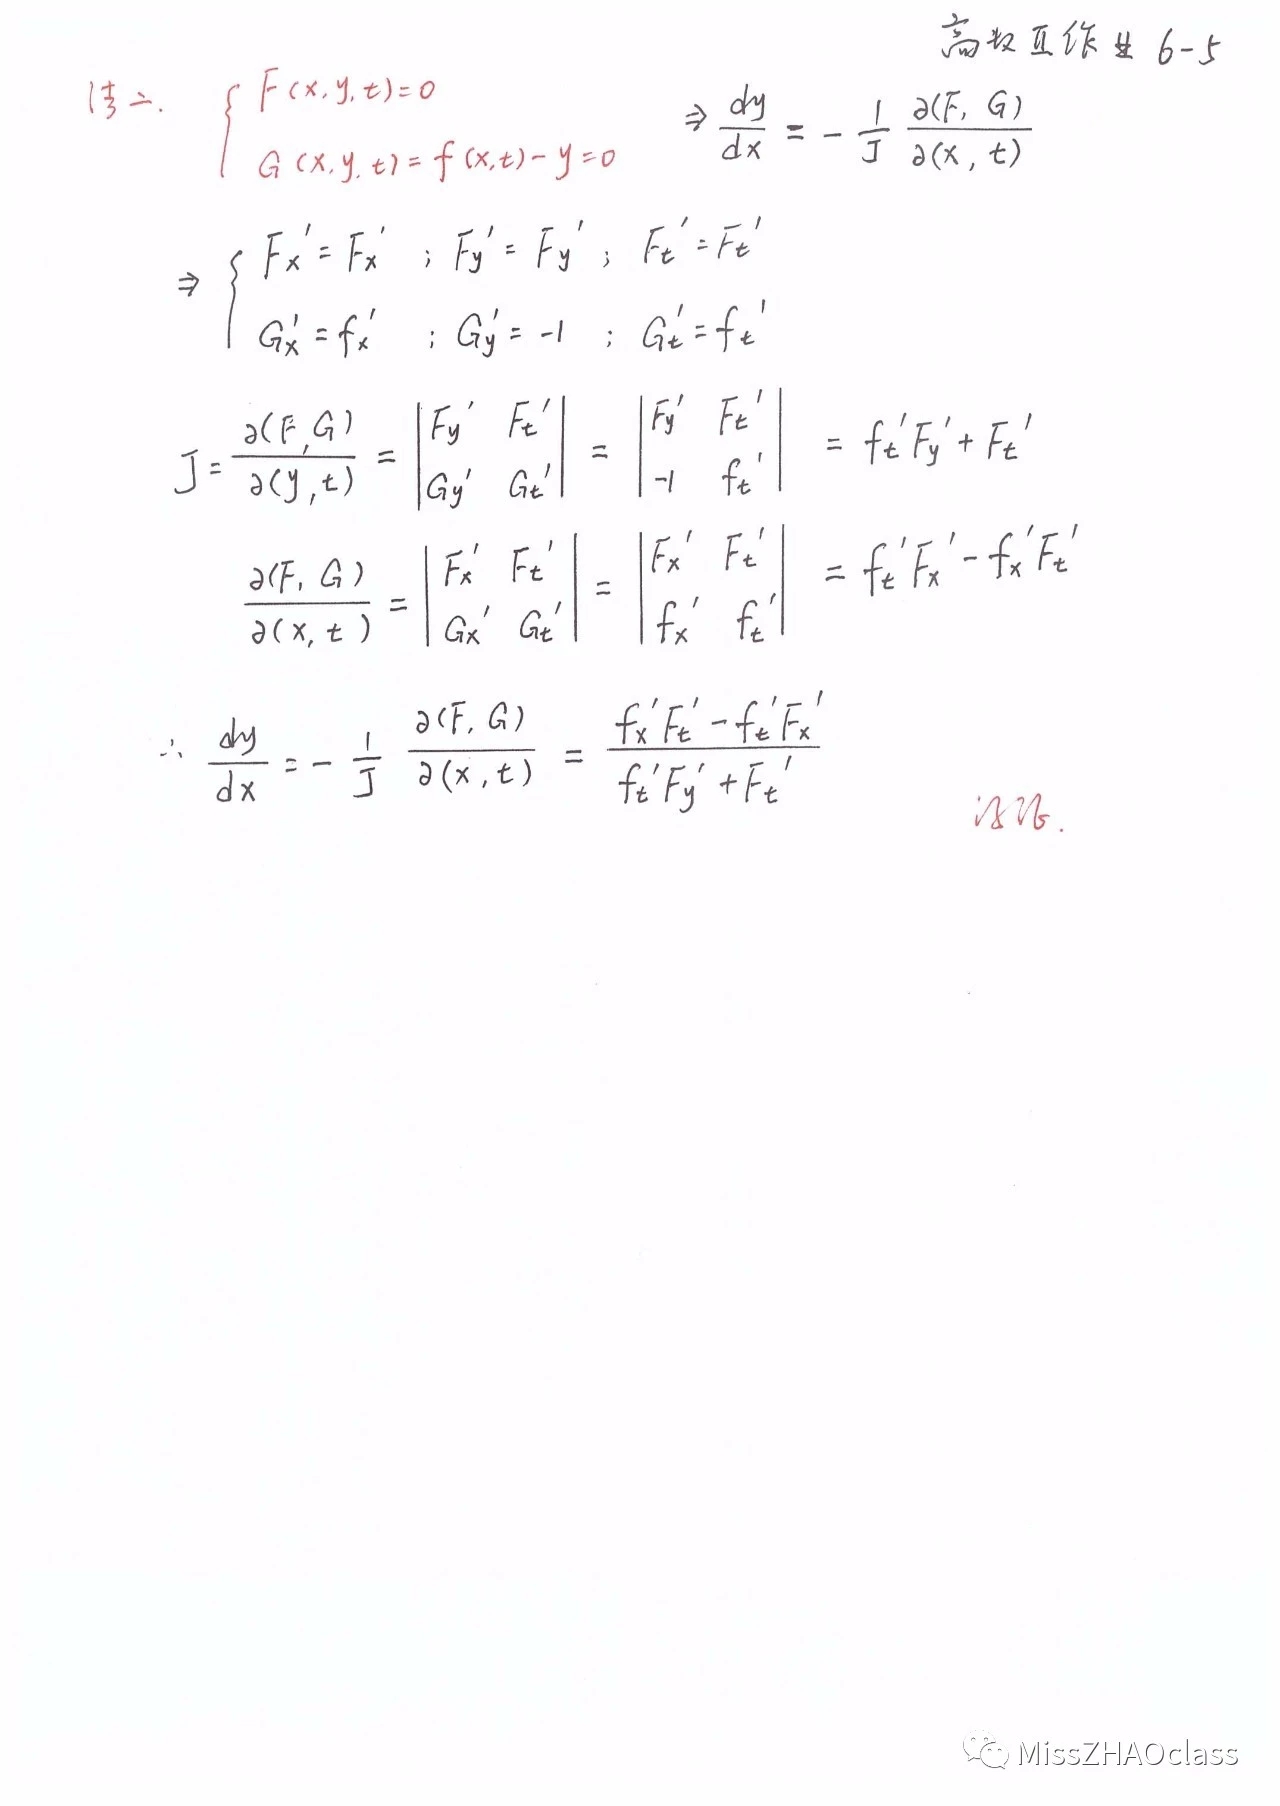 高数五作业 6-5
法二. { F(x,y,t)=0
G(x,y,t)=f(x,t)-y=0
⇒ dy/dx = - 1/J ∂(F,G)/∂(x,t)
⇒ { Fx'=Fx' ; Fy'=Fy' ; Ft'=Ft'
Gx'=fx' ; Gy'=-1 ; Gt'=ft'
J= ∂(F,G)/∂(y,t) = | Fy' Ft' ; Gy' Gt' | = | Fy' Ft' ; -1 ft' | = ft'Fy'+Ft'
∂(F,G)/∂(x,t) = | Fx' Ft' ; Gx' Gt' | = | Fx' Ft' ; fx' ft' | = ft'Fx'-fx'Ft'
∴ dy/dx = - 1/J ∂(F,G)/∂(x,t) = (fx'Ft'-ft'Fx')/(ft'Fy'+Ft')
MissZHAOclass